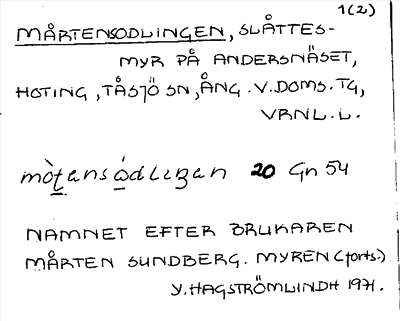 1(2)
MÅRTENSODLINGEN, SLÅTTES-
MYR PÅ ANDERSNÄSET,
HOTING, TÅSJÖ SN, ÅNG. V. DOMS. TG,
VRNL. L.
20 Gn 54
NAMNET EFTER BRUKAREN
MÅRTEN SUNDBERG. MYREN (forts.)
Y. HAGSTRÖMLINDH 1971.